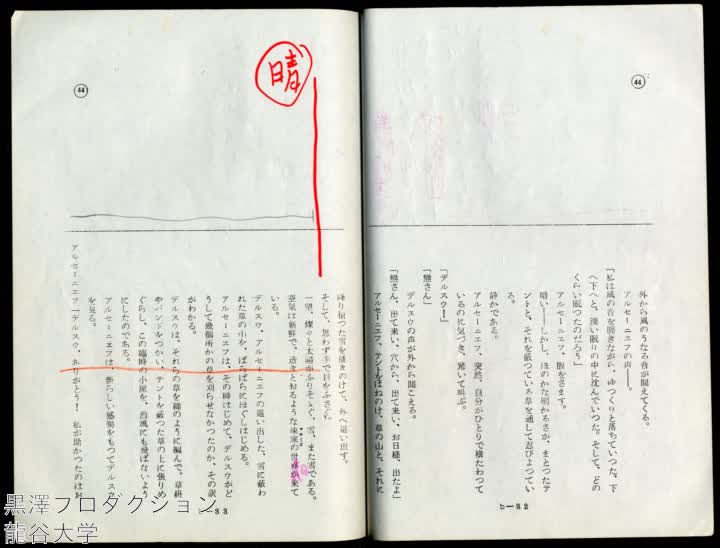 ㊹
外から風のうなる音が聞えてくる。
アルセーニエフの声――。
「私は風の音を聞きながら、ゆつくりと落ちていつた。下
へ下へと、深い眠りの中に沈んでいつた。そして、どの
くらい眠つたのだろう」
アルセーニエフ、眼をさます。
暗い――しかし、ほのかな明かるさが、まとつたテ
ントと、それを蔽つている草を通して忍びよつてい
る。
静かである。
アルセーニエフ、突然、自分がひとりで横たわつて
いるのに気づき、驚いて叫ぶ。
「デルスウ！」
「熊さん」
デルスウの声が外から聞こえる。
「熊さん、出て来い、穴から、出て来い、お日様、出たよ」
アルセーニエフ、テントをはねのけ、草の山と、それに
b—32
㊹
晴
降り積つた雪を掻きのけて、外へ這い出す。
そして、思わず手で目をふさぐ。
一望、燦々と太陽がふりそゝぐ、雪、また雪である。
空気は新鮮で、透きとおるような
いる。
デルスウ、アルセーニエフの這い出した、雪に蔽わ
れた草の小を、ばらばらにほぐしはじめる。
アルセーニエフは、その時はじめて、デルスウがど
うして幾個所かの草を刈らせなかつたのか、その訳
がわかる。
デルスウは、それらの草を縄のように編んで、草紐
やバンドをつかい、テントを蔽つた草の上に張りめ
ぐらし、この臨時の小屋を、烈風にも飛ばないよう
にしたのである。
アルセーニエフは、新らしい感動をもつてデルスウ
を見る。
アルセーニエフ「デルスウ、ありがとう！　私が助かつたのはお
b—33
黒澤プロダクション
龍谷大学